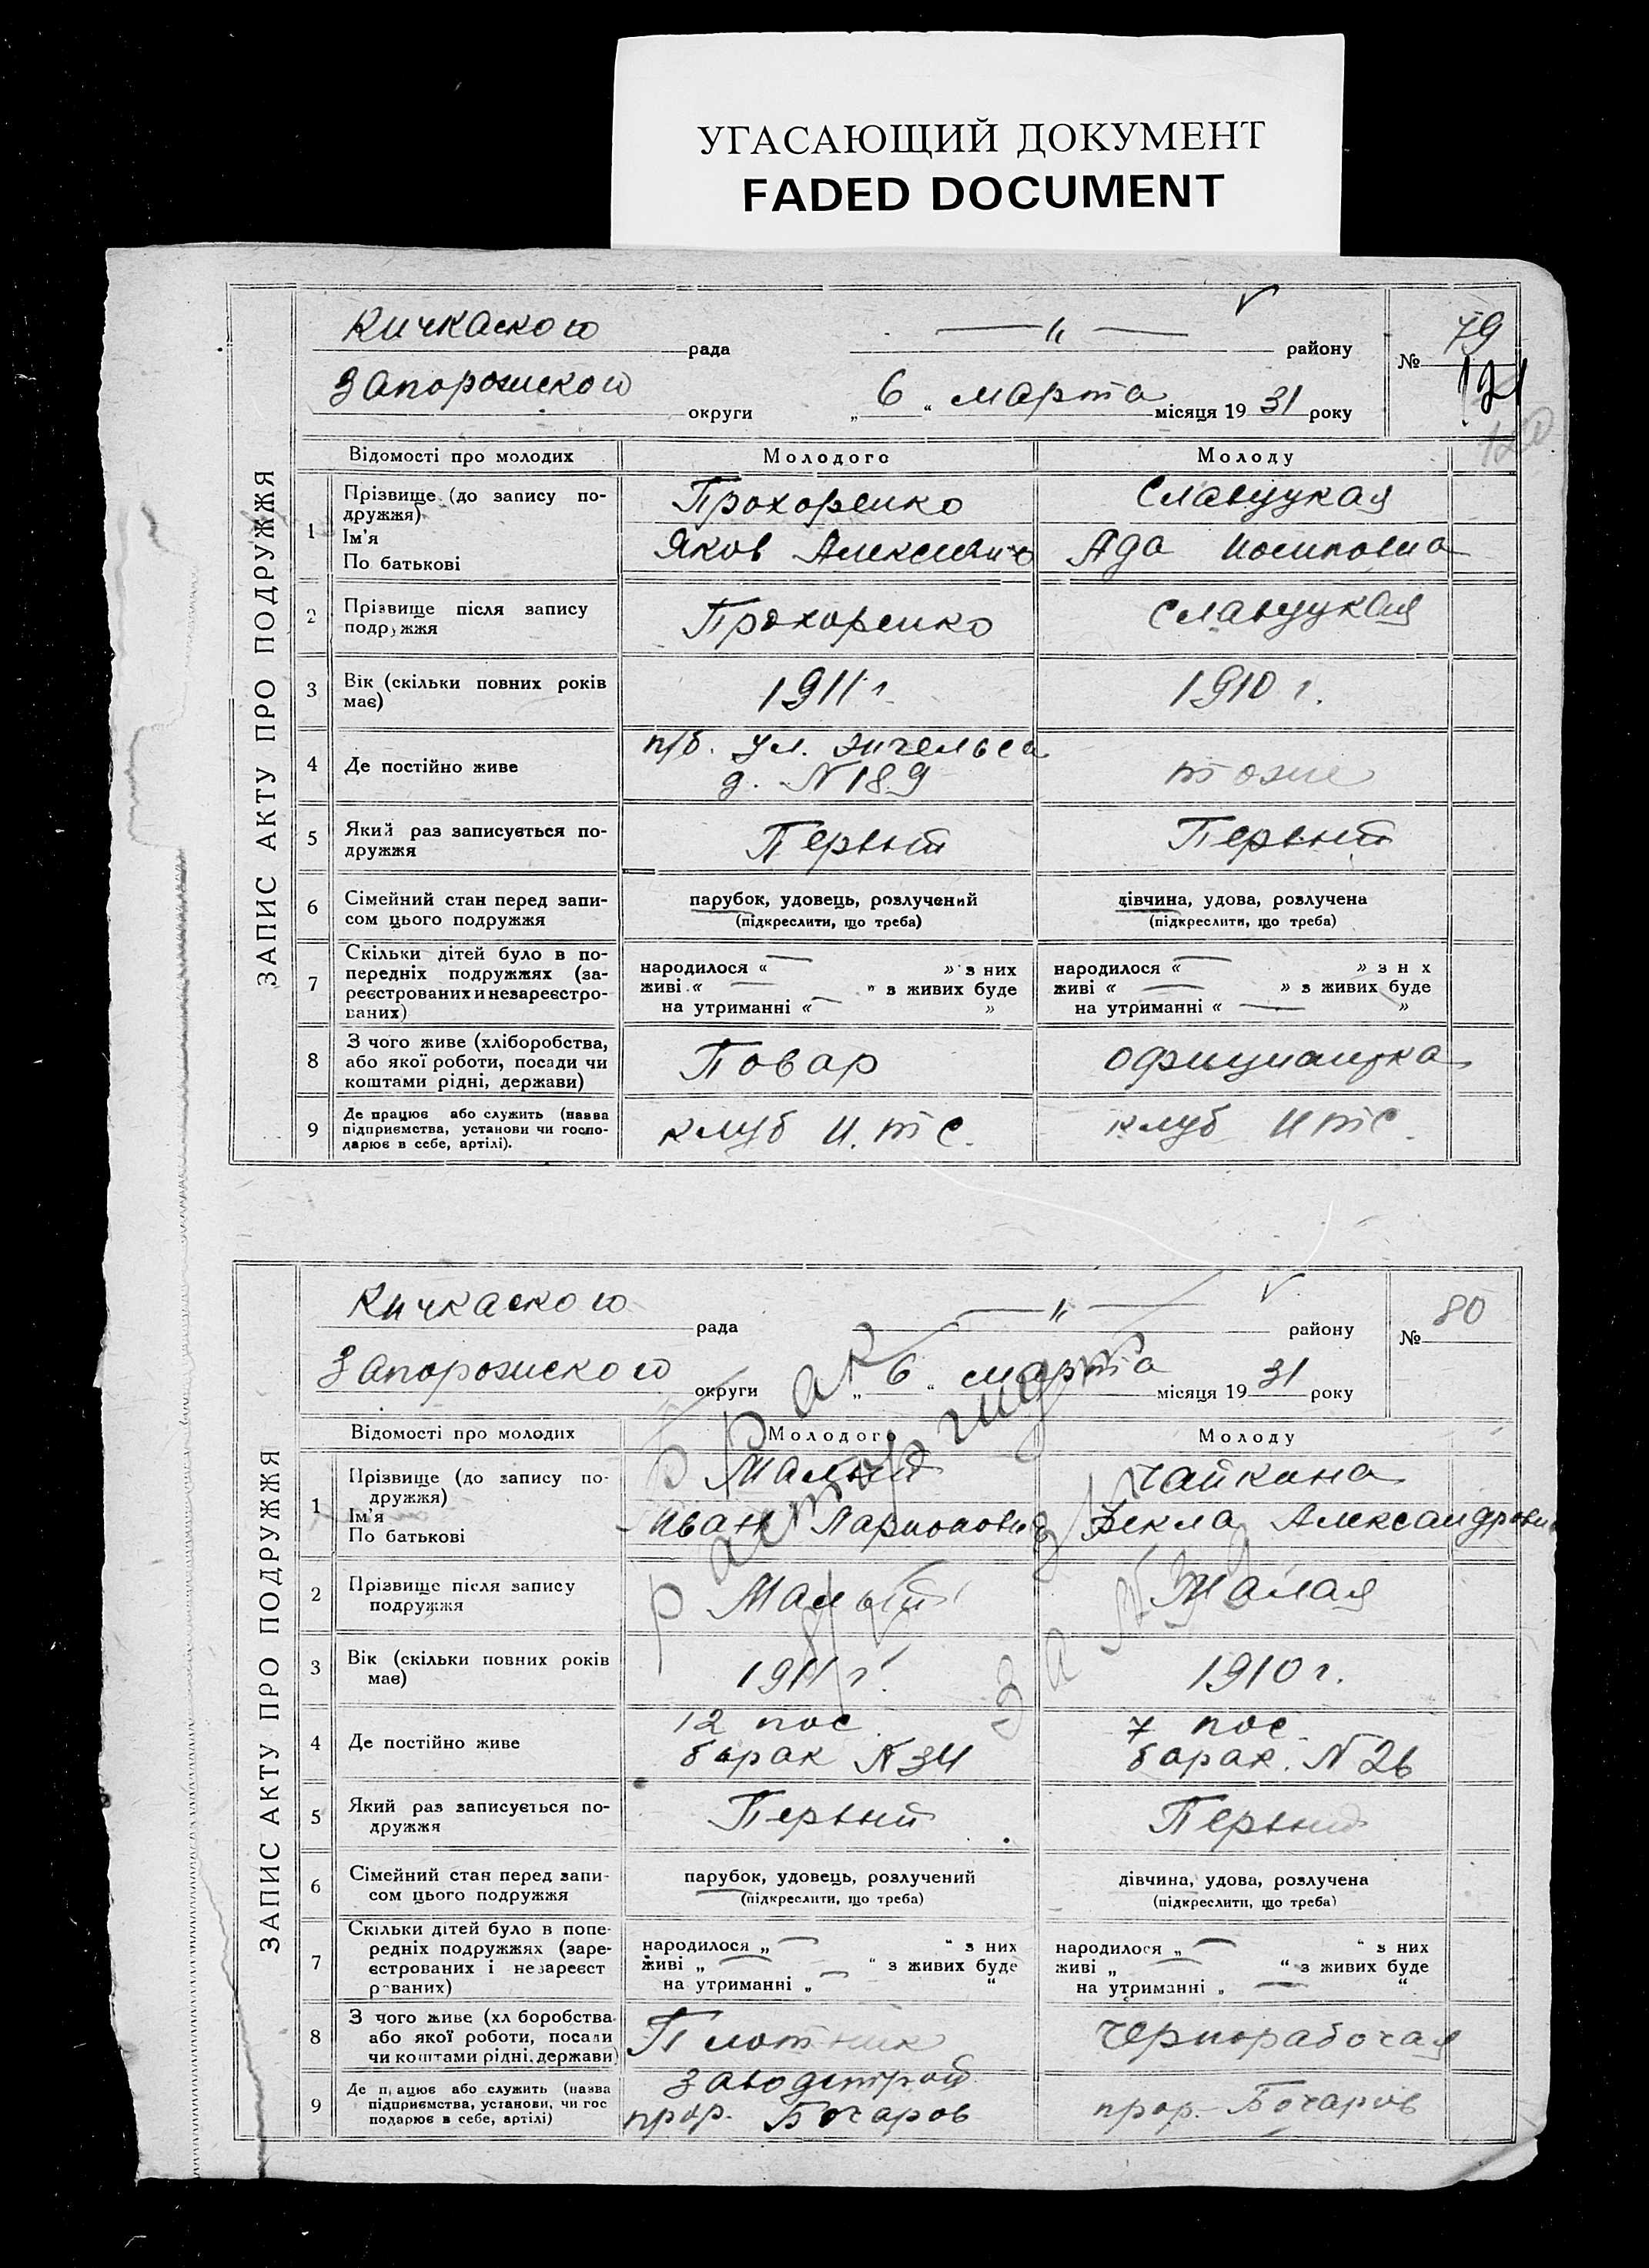 УГАСАЮЩИЙ ДОКУМЕНТ
FADED DOCUMENT
ЗАПИС АКТУ ПРО ПОДРУЖЖЯ
Кичкаского рада — " — району
Запорожского округи „ 6 “ марта місяця 19 31 року
№ 79
121
120
Відомості про молодих Молодого Молоду
1 Прізвище (до запису по-
дружжя)
Ім'я
По батькові
Прохоренко Славуцкая
Яков Алексеевич Ада Иосиповна
2 Прізвище після запису
подружжя
Прохоренко Славуцкая
3 Вік (скільки повних років
має)
1911 г. 1910 г.
4 Де постійно живе
п/б. ул. Энгельса
д. N 189
тоже
5 Який раз записується по-
дружжя
Первый Первый
6 Сімейний стан перед запи-
сом цього подружжя
парубок, удовець, розлучений
(підкреслити, що треба)
дівчина, удова, розлучена
(підкреслити, що треба)
7 Скільки дітей було в по-
передніх подружжях (за-
реєстрованих и незареєстро-
ваних)
народилося « — » з них
живі « — » з живих буде
на утриманні « — »
народилося « — » з н х
живі « — » з живих буде
на утриманні « — »
8 З чого живе (хліборобства,
або якої роботи, посади чи
коштами рідні, держави)
Повар официантка
9 Де працює або служить (назва
підприємства, установи чи госпо-
дарює в себе, артілі).
клуб И.ТС. клуб ИТС.
ЗАПИС АКТУ ПРО ПОДРУЖЖЯ
Кичкаского рада — " — району
Запорожского округи „ 6 “ марта місяця 19 31 року
№ 80
Брак
расторгнут
за № 39
Відомості про молодих Молодого Молоду
1 Прізвище (до запису по-
дружжя)
Ім'я
По батькові
Малый Чайкина
Иван Ларионович Фекла Александровн
2 Прізвище після запису
подружжя
Малый Малая
3 Вік (скільки повних років
має)
1911 г. 1910 г.
4 Де постійно живе
12 пос.
барак N 34
7 пос.
барак. N 26
5 Який раз записується по-
дружжя
Первый Первый
6 Сімейний стан перед запи-
сом цього подружжя
парубок, удовець, розлучений
(підкреслити, що треба)
дівчина, удова, розлучена
(підкреслити, що треба)
7 Скільки дітей було в попе-
редніх подружжях (заре-
єстрованих і незареєст
рованих)
народилося „ — “ з них
живі „ — “ з живих буде
на утриманні „ — “
народилося „ — “ з них
живі „ — “ з живих буде
на утриманні „ — “
8 З чого живе (хл боробства
або якої роботи, посади
чи коштами рідні, держави)
Плотник Чернорабочая
9 Де працює або служить (назва
підприємства, установи, чи гос
подарює в себе, артілі)
Заводстрой
прор. Бочаров
прор. Бочаров